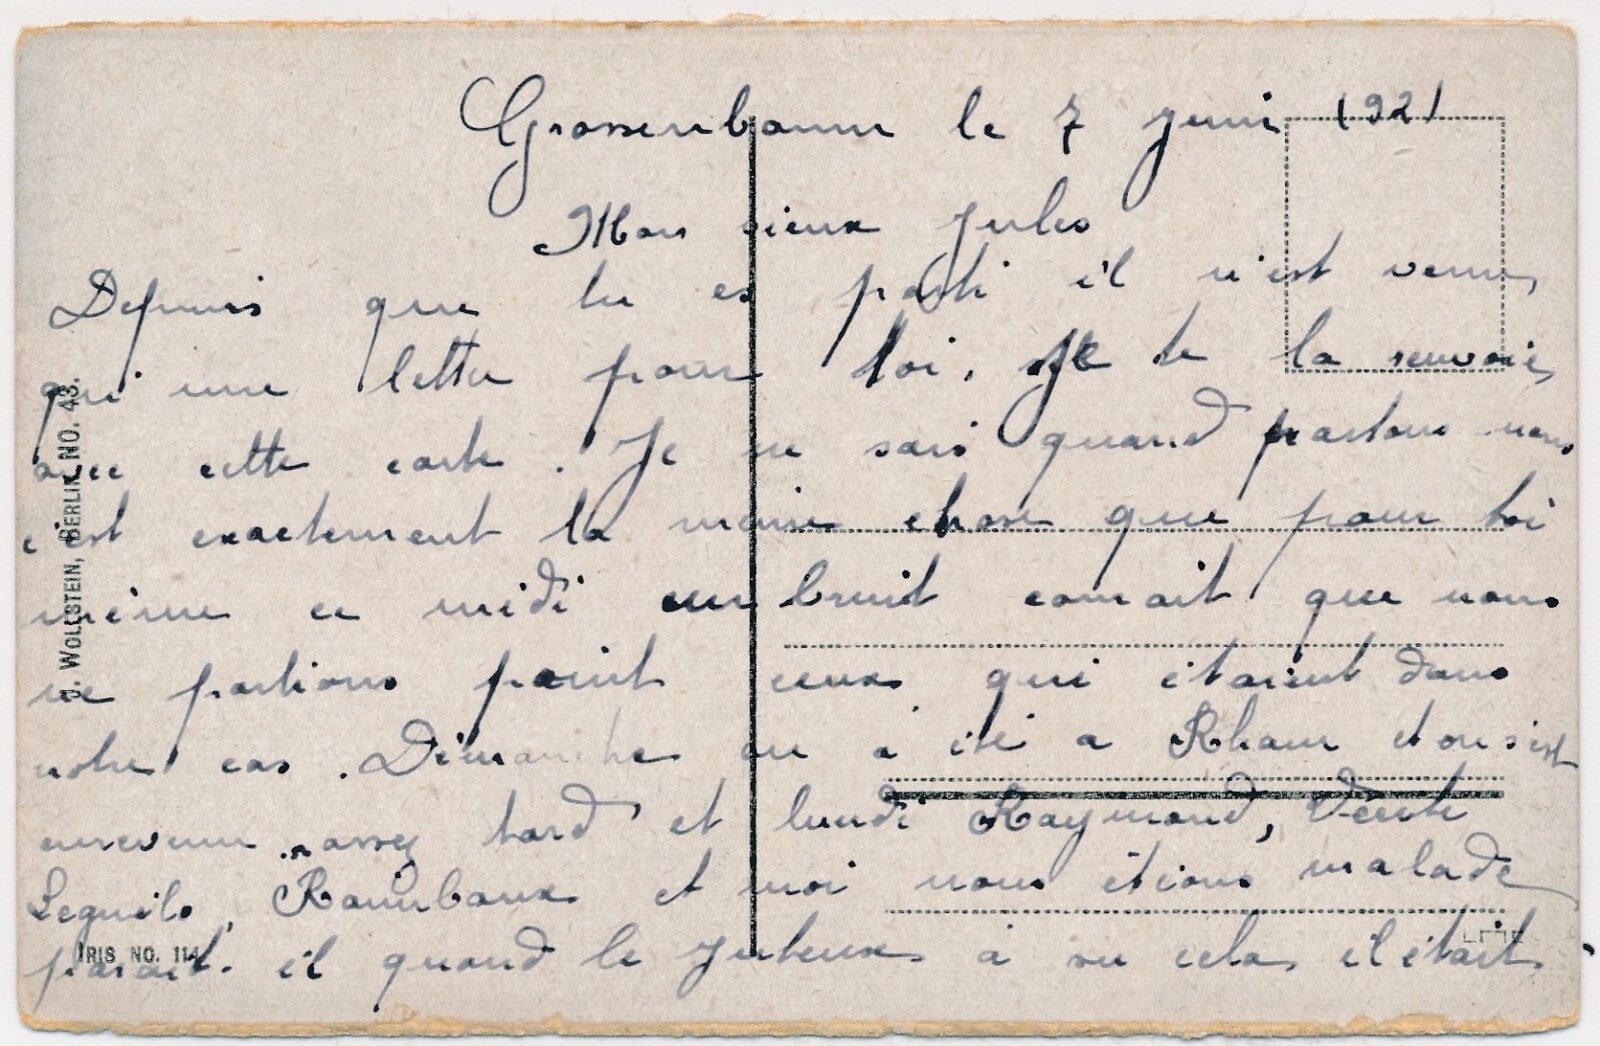 Grossenbaum le 7 Juin 1921
Mon vieux Jules
Depuis que tu es parti il n'est venu
qui une lettre pour toi, Je te la renvoie
avec cette carte. Je ne sais quand partons nous
c'est exactement la même chose que pour toi
même ce midi un bruit courait que nous
ne partions point ceux qui étaient dans
notre cas. Dimanche on à été a Rhaur et on s'est
enrevenu assez tard et lundi Raymond,
Leguils, Raimbaux et moi nous étions malade
parait-il quand le Juteux à su cela il était
J. WOLLSTEIN, BERLIN NO. 43.
IRIS NO. 114